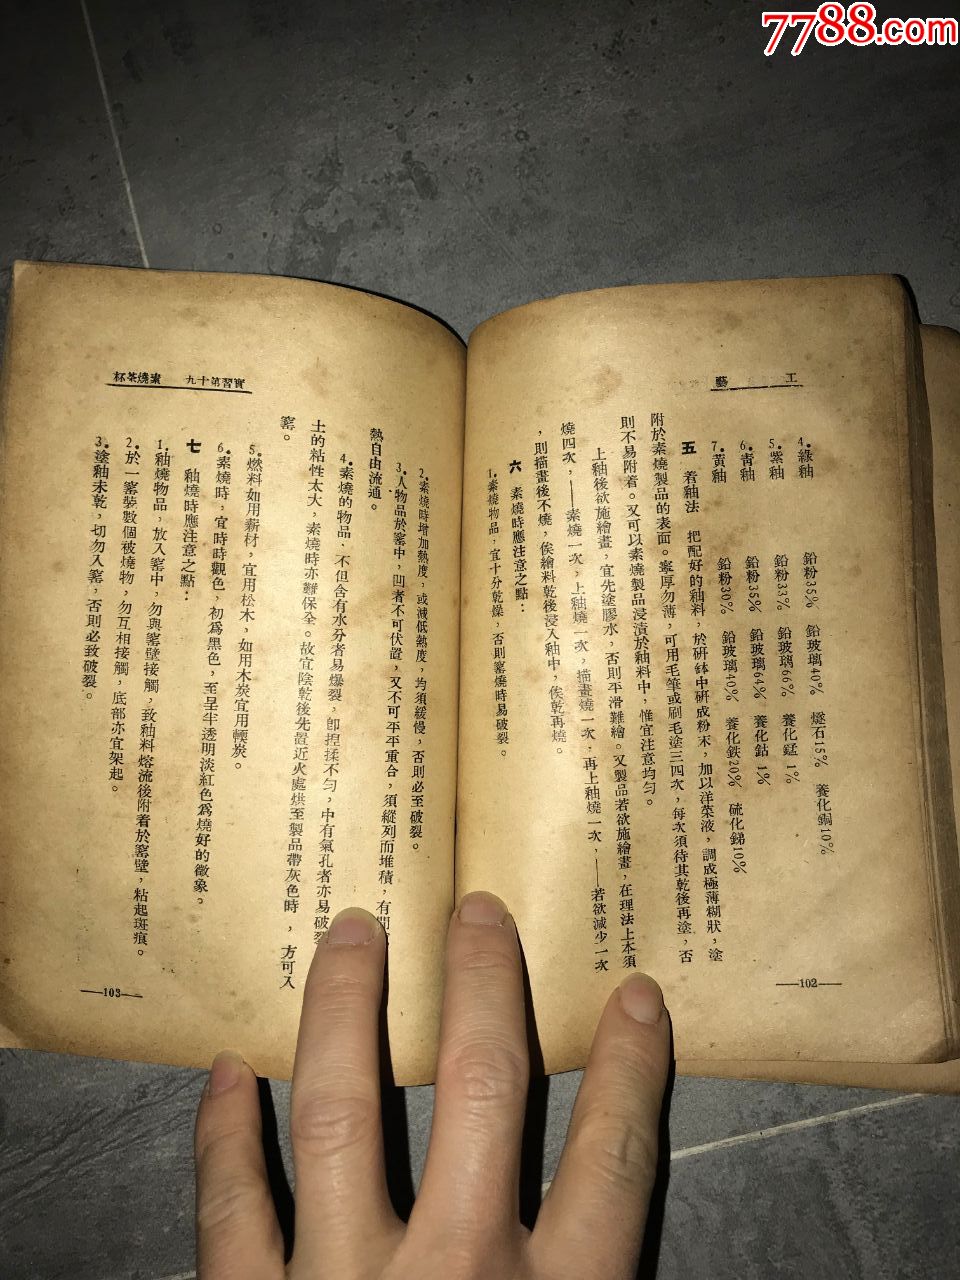 7788.com
工藝
4.綠釉 鉛粉35% 鉛玻璃40% 燧石15% 養化銅10%
5.紫釉 鉛粉33% 鉛玻璃66% 養化錳 1%
6.青釉 鉛粉35% 鉛玻璃64% 養化鈷 1%
7.黃釉 鉛粉30% 鉛玻璃40% 養化鐵20% 硫化銻10%
五 着釉法 把配好的釉料，於硏鉢中硏成粉末，加以洋菜液，調成極薄糊狀，塗
附於素燒製品的表面。寧厚勿薄，可用毛筆或刷毛塗三四次，每次須待其乾後再塗，否
則不易附着。又可以素燒製品浸漬於釉料中，惟宜注意均勻。
上釉後欲施繪畫，宜先塗膠水，否則平滑難繪。又製品若欲施繪畫，在理法上本須
燒四次，——素燒一次，上釉燒一次，描畫燒一次，再上釉燒一次，——若欲減少一次
，則描畫後不燒，俟繪料乾後浸入釉中，俟乾再燒。
六 素燒時應注意之點：
1.素燒物品，宜十分乾燥，否則窰燒時易破裂。
—102—
實習第十九 素燒茶杯
2.素燒時增加熱度，或減低熱度，均須緩慢，否則必至破裂。
3.入物品於窰中，凹者不可伏置，又不可平平重合，須縱列而堆積，有間
熱自由流通。
4.素燒的物品．不但含有水分者易爆裂，卽捏揉不勻，中有氣孔者亦易破裂
土的粘性太大，素燒時亦難保全。故宜陰乾後先置近火處烘至製品帶灰色時，方可入
窰。
5.燃料如用薪材，宜用松木，如用木炭宜用櫟炭。
6.素燒時，宜時時觀色，初爲黑色，至呈半透明淡紅色爲燒好的徵象。
七 釉燒時應注意之點：
1.釉燒物品，放入窰中，勿與窰壁接觸，致釉料熔流後附着於窰壁，粘起斑痕。
2.於一窰裝數個被燒物，勿互相接觸，底部亦宜架起。
3.塗釉未乾，切勿入窰，否則必致破裂。
—103—